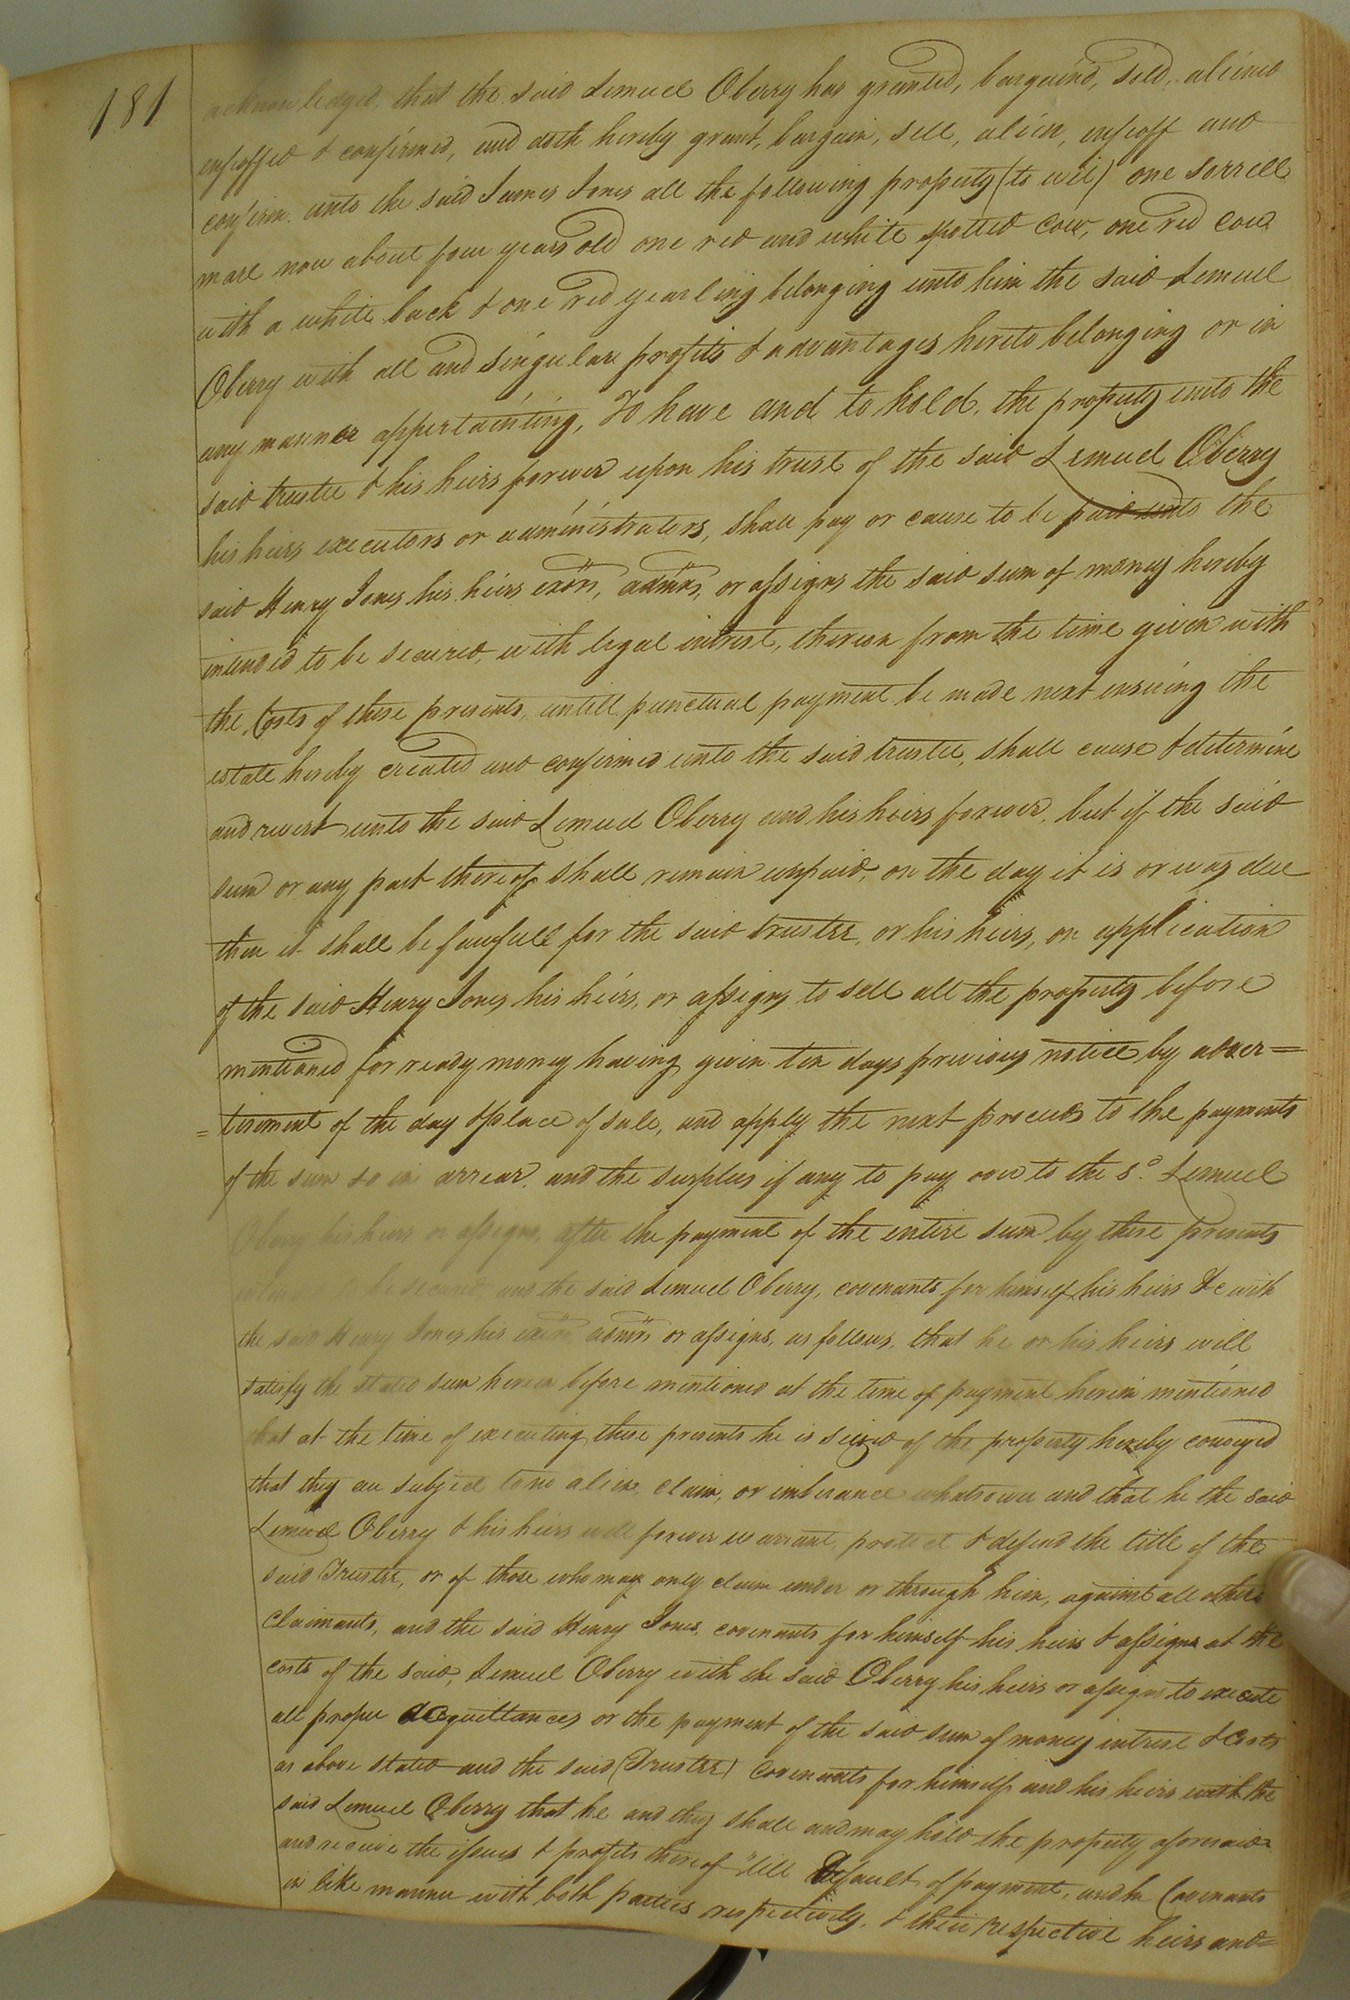 181
acknowledged, that the said Lemuel Oberry has granted, bargain'd, sold, aliened
enfeoffed & confirmed, and doth hereby grant, bargain, sell, alien, enfeoff and
confirm unto the said James Jones all the following property (to wit) one sorrell
mare now about four years old one red and white spotted cow, one red cow
with a white back & one red yearling belonging unto him the said Lemuel
Oberry with all and singular profits & advantages hereto belonging or in
any manner appertaining, To have and to hold, the property unto the
said trustee & his heirs forever upon his trust if the said Lemuel Oberry
his heirs executors or administrators, shall pay or cause to be paid unto the
said Henry Jones his heirs exors, admrs, or assigns the said sum of money hereby
intended to be secured, with legal intrest, thereon from the time given with
the Costs of these presents, untill punctual payment be made next ensueing the
estate hereby created and confirmed unto the said trustee, shall cause & determine
and revert unto the said Lemuel Oberry and his heirs forever, but if the said
sum or any part thereof shall remain unpaid, on the day it is or was due
then it shall be lawfull for the said trustee, or his heirs, on application
of the said Henry Jones his heirs, or assigns to sell all the property before
mentioned for ready money having given ten days previous notice by adver=
=tisement of the day & place of sale, and apply the next proceeds to the payments
of the sum so in arrear, and the surplus if any to pay over to the sd. Lemuel
Oberry his heirs or assigns, after the payment of the entire sum by these presents
intended to be secured, and the said Lemuel Oberry, covenants for himself his heirs &c with
the said Henry Jones his exors admrs or assigns, as follows, that he or his heirs will
satisfy the stated sum herein before mentioned at the time of payment herein mentioned
that at the time of executing these presents he is seized of the property hereby conveyed
that they are subject to no alien, claim, or imberance whatsoever and that he the said
Lemuel Oberry & his heirs will forever warrant, protect & defend the title of the
said Trustee, or of those who may only claim under or through him, against all other
claimants, and the said Henry Jones, covenants for himself his heirs & assigns at the
costs of the said, Lemuel Oberry with the said Oberry his heirs or assigns to execute
all proper acquittances or the payment of the said sum of money intrest & Costs
as above stated and the said (Trustee) Covenants for himself and his heirs with the
said Lemuel Oberry that he and they shall and may hold the property aforesaid
and receive the issues & profits thereof 'till Default of payment, and he Covenants
in like manner with both parties respectively, & their respective heirs and=